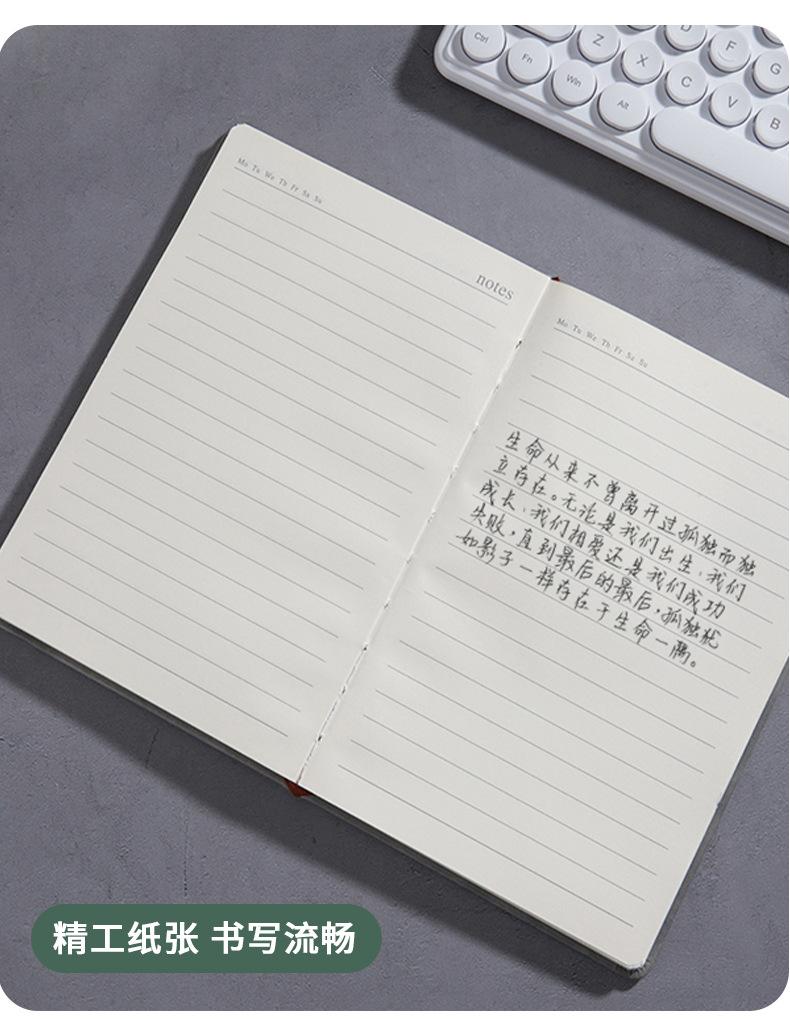 Ctrl
Fn
Win
Alt
Z
X
C
V
B
D
F
G
Mo Tu We Th Fr Sa Su
notes
Mo Tu We Th Fr Sa Su
生命从来不曾离开过孤独而独
立存在。无论是我们出生、我们
成长、我们相爱还是我们成功
失败，直到最后的最后，孤独犹
如影子一样存在于生命一隅。
精工纸张 书写流畅